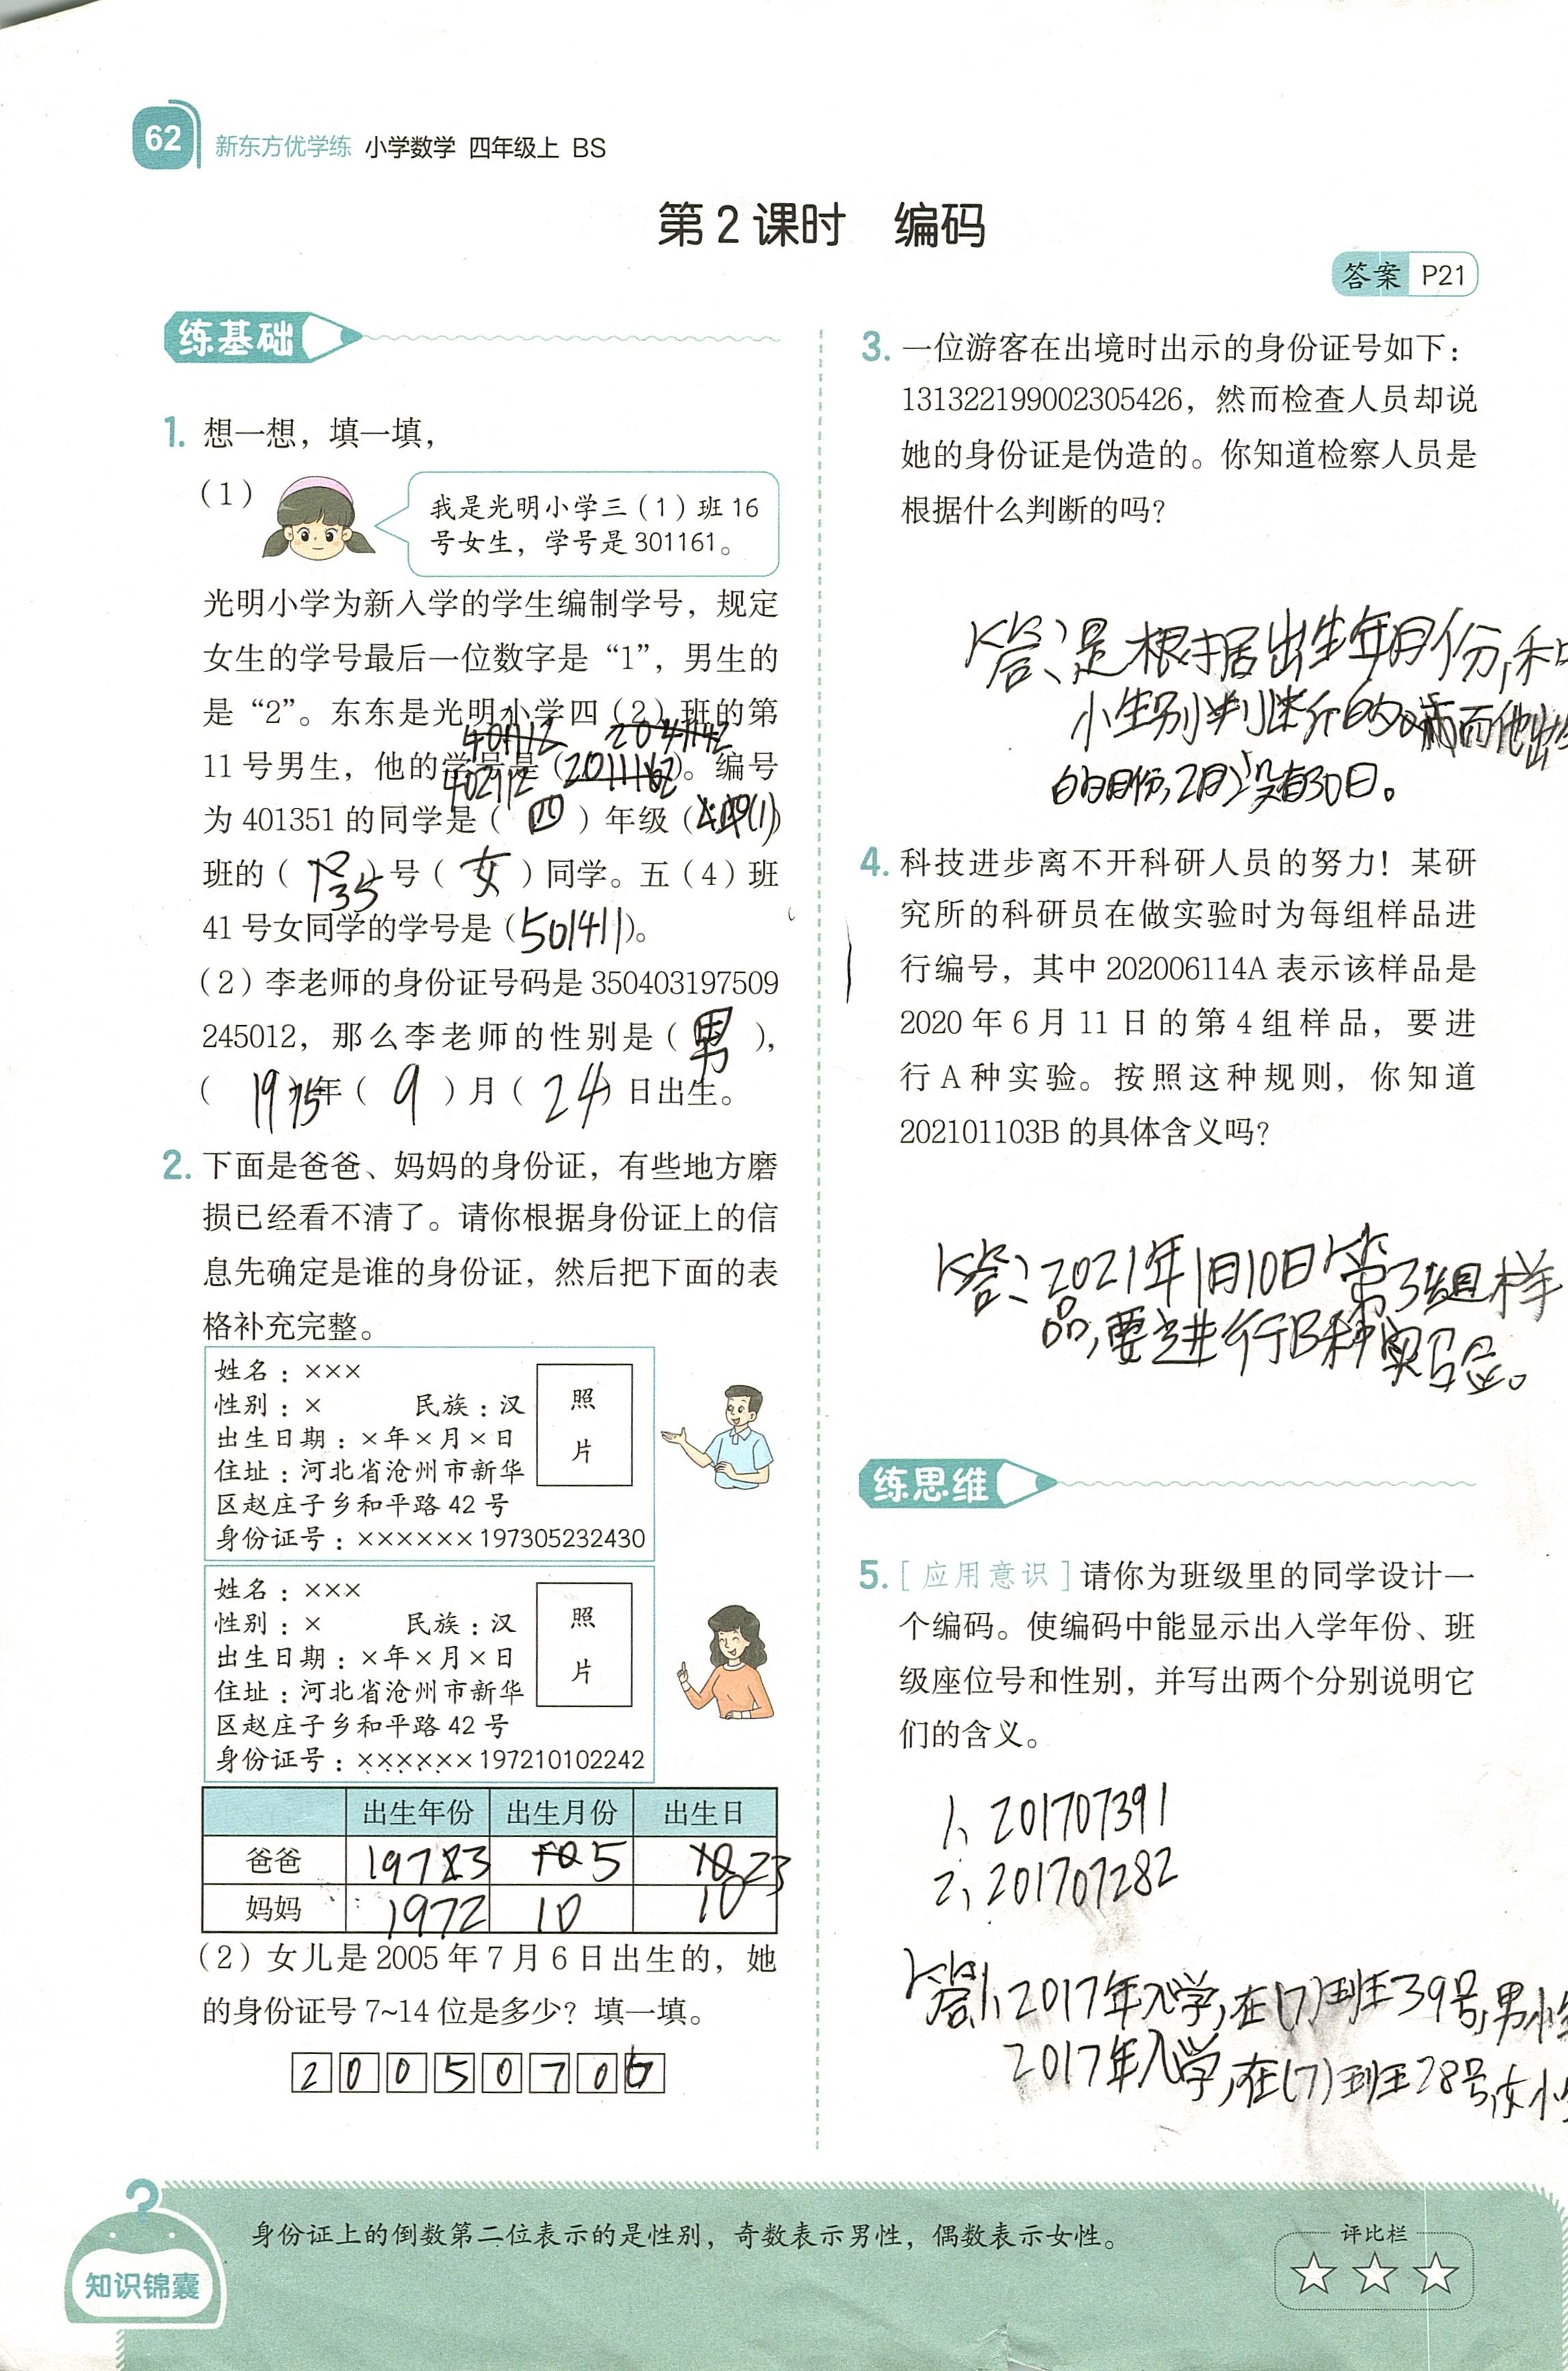 62 新东方优学练 小学数学 四年级上 BS
第2课时 编码
答案 P21
练基础
1. 想一想，填一填，
（1）
我是光明小学三（1）班16
号女生，学号是301161。
光明小学为新入学的学生编制学号，规定
女生的学号最后一位数字是“1”，男生的
是“2”。东东是光明小学四（2）班的第
11号男生，他的学号是（ ）。编号
402112
为401351的同学是（ 四 ）年级（ (1) ）
班的（ 35 ）号（ 女 ）同学。五（4）班
41号女同学的学号是（501411）。
（2）李老师的身份证号码是350403197509
245012，那么李老师的性别是（ 男 ），
（ 1975 ）年（ 9 ）月（ 24 ）日出生。
2. 下面是爸爸、妈妈的身份证，有些地方磨
损已经看不清了。请你根据身份证上的信
息先确定是谁的身份证，然后把下面的表
格补充完整。
姓名：×××
性别：× 民族：汉
出生日期：×年×月×日
住址：河北省沧州市新华
区赵庄子乡和平路42号
身份证号：××××××197305232430
照
片
姓名：×××
性别：× 民族：汉
出生日期：×年×月×日
住址：河北省沧州市新华
区赵庄子乡和平路42号
身份证号：××××××197210102242
照
片
出生年份 出生月份 出生日
爸爸 1973 5 23
妈妈 1972 10 10
（2）女儿是2005年7月6日出生的，她
的身份证号7~14位是多少？填一填。
2 0 0 5 0 7 0 6
3. 一位游客在出境时出示的身份证号如下：
131322199002305426，然而检查人员却说
她的身份证是伪造的。你知道检察人员是
根据什么判断的吗？
答：是根据出生年月份，和
小生别判断的，而他出生
的月份，2月没有30日。
4. 科技进步离不开科研人员的努力！某研
究所的科研员在做实验时为每组样品进
行编号，其中202006114A表示该样品是
2020年6月11日的第4组样品，要进
行A种实验。按照这种规则，你知道
202101103B的具体含义吗？
答：2021年1月10日第3组样
品，要进行B种实验。
练思维
5. [应用意识]请你为班级里的同学设计一
个编码。使编码中能显示出入学年份、班
级座位号和性别，并写出两个分别说明它
们的含义。
1、201707391
2、201707282
答：1、2017年入学，在(7)班39号，男
2017年入学，在(7)班28号，女
知识锦囊
身份证上的倒数第二位表示的是性别，奇数表示男性，偶数表示女性。
评比栏